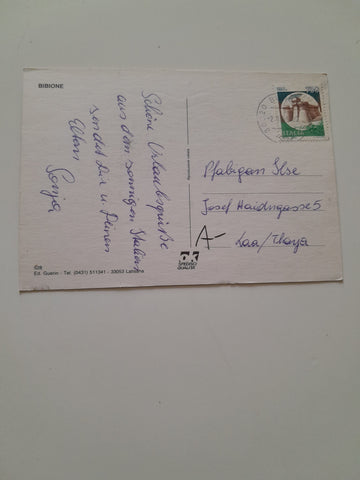 BIBIONE
Schöne Urlaubsgrüße
aus dem sonnigen Italien
sendet Dir u. Deinen
Eltern
Sonja
Pfabigan Ilse
Josef Haidngasse 5
A- Laa/Thaya
ITALIA
Ed. Guerin - Tel. (0431) 511341 - 33053 Latisana
SPEDISCI
QUALITÀ